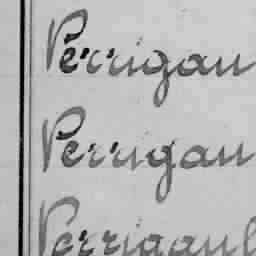 Perrigau
Perrigau
Perrigaul